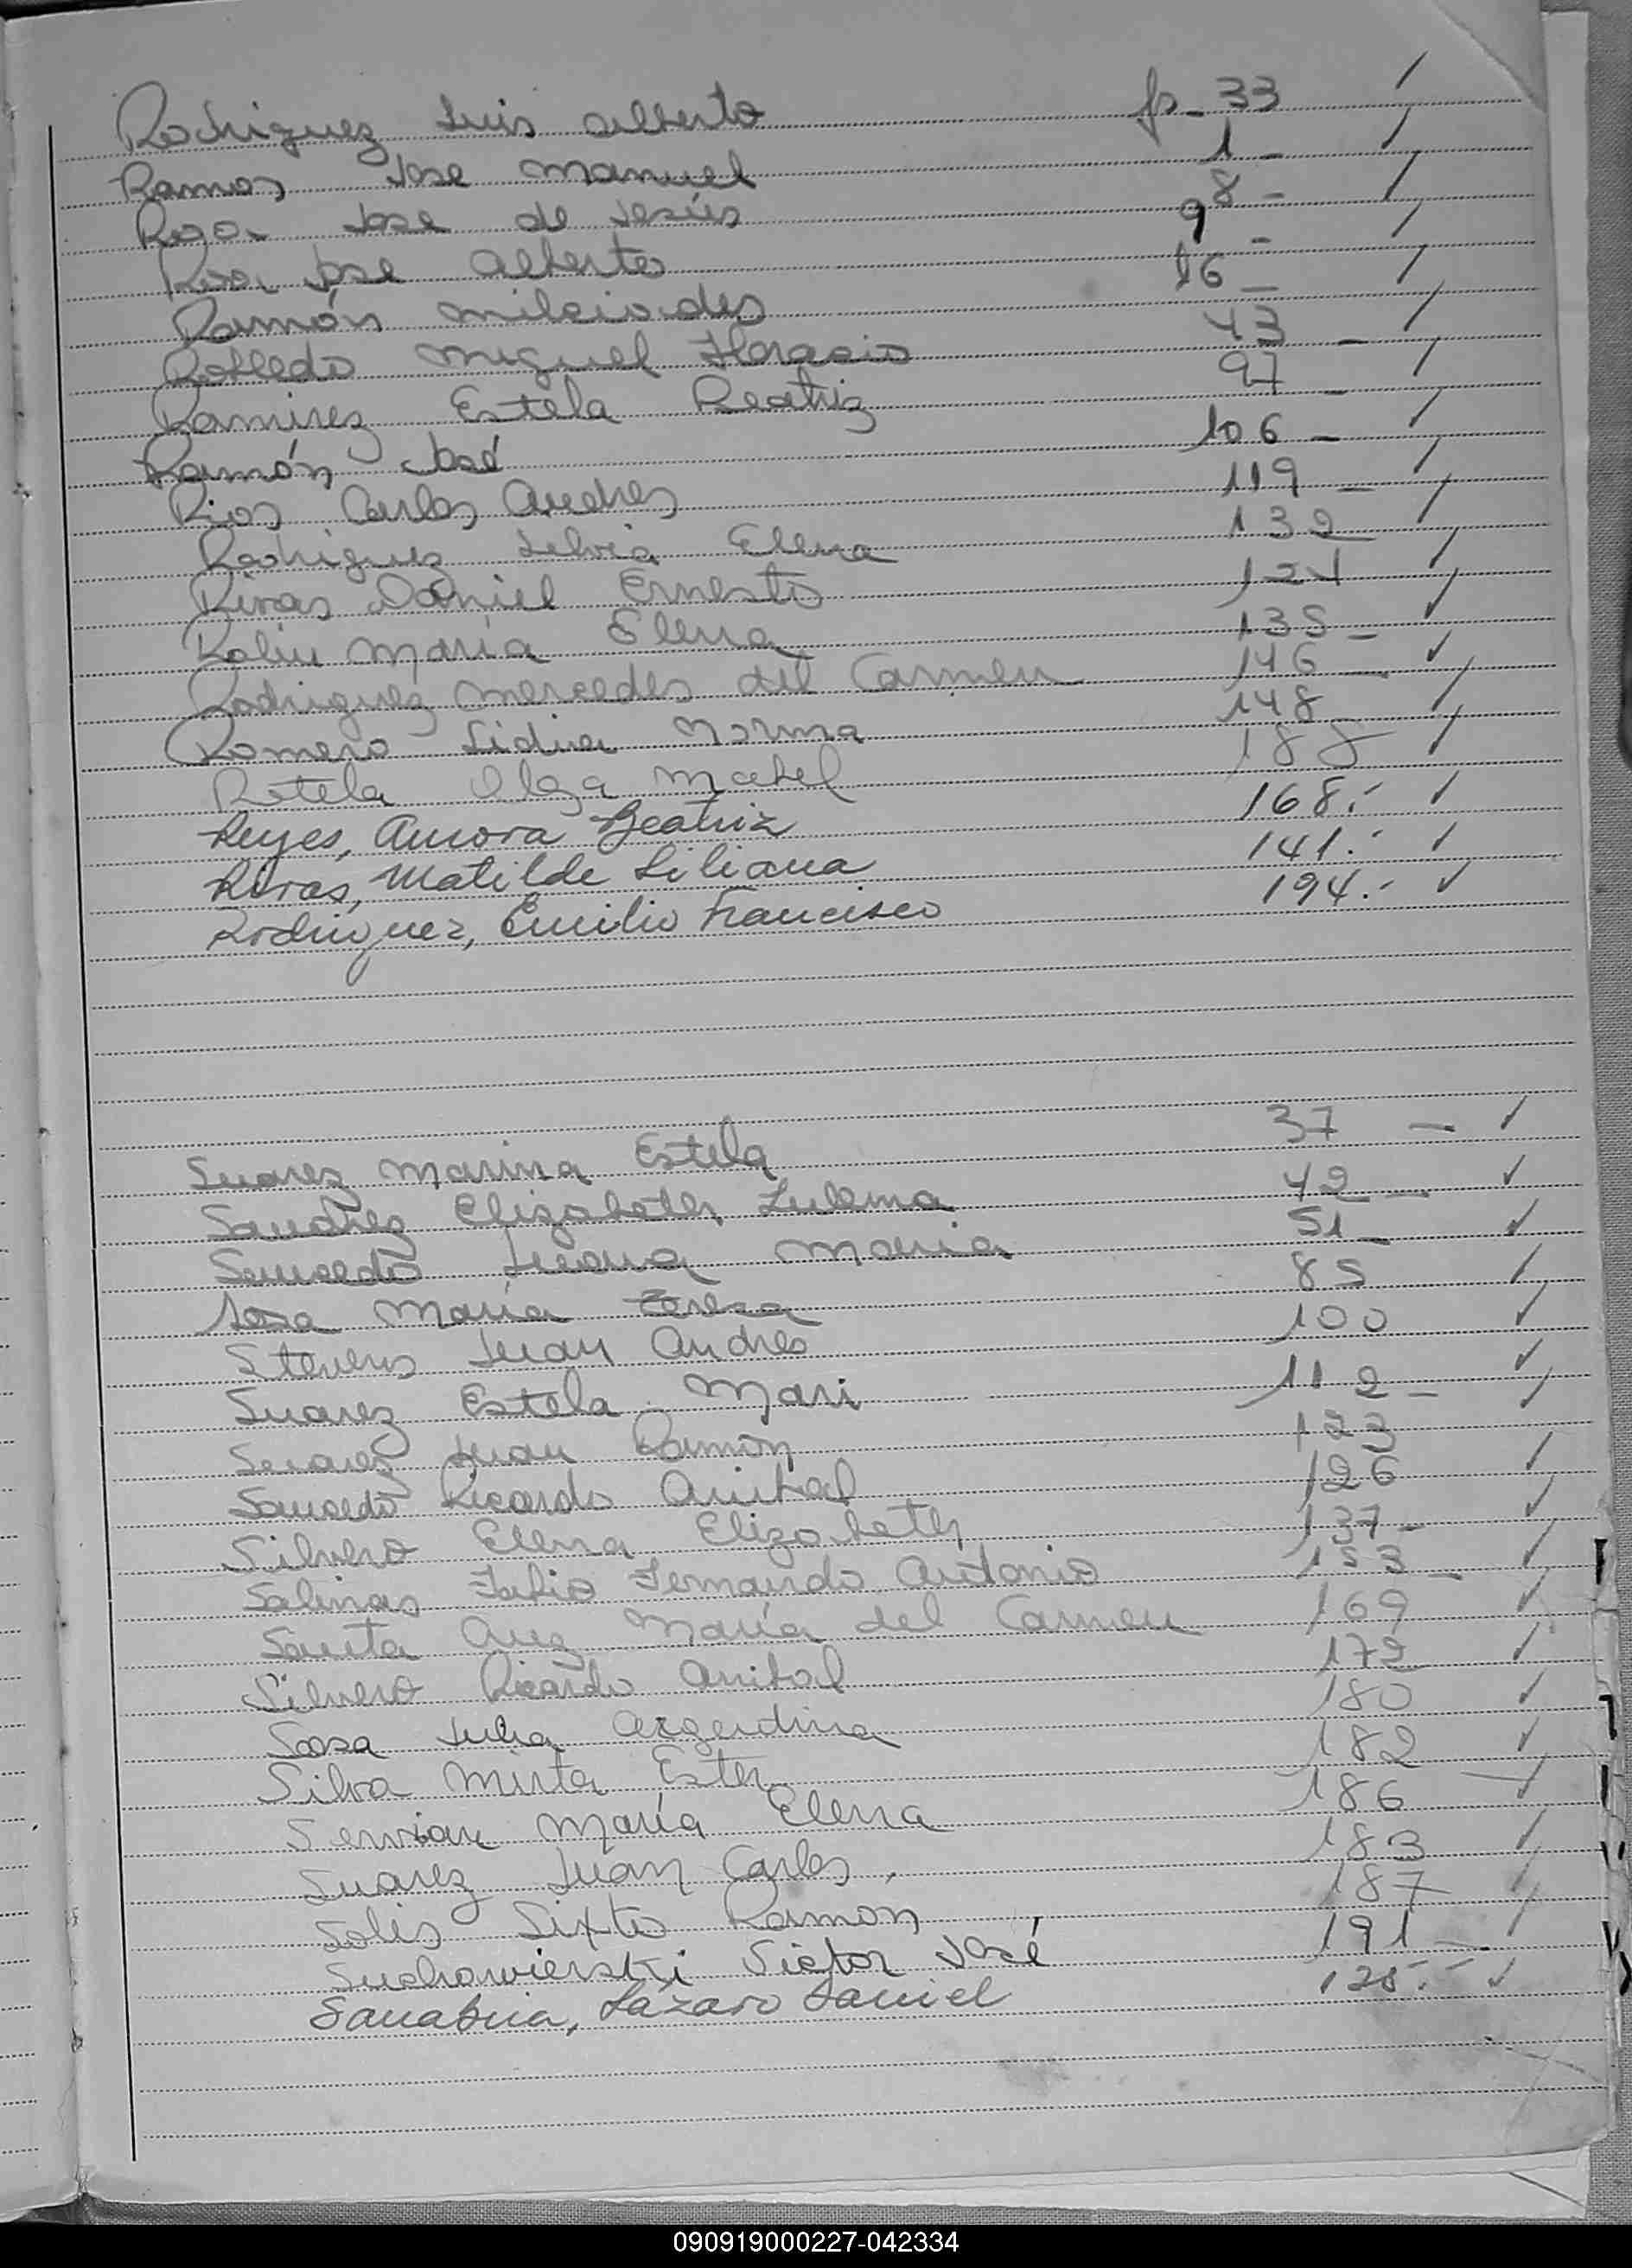 Rodriguez Luis Alberto fs_ 33 /
Ramos Jose Manuel 1 _ /
Roa Jose de Jesús 8 _ /
Roa Jose Alberto 9 _ /
Ramón Milciades 16 _ /
Robledo Miguel Horacio 43 _ /
Ramirez Estela Beatriz 97 _ /
Ramón José 106 _ /
Rios Carlos Andres 119 _ /
Rodriguez Silvia Elena 132 /
Rivas Daniel Ernesto 121 /
María Elena 135 _ ✓
Rodriguez Mercedes del Carmen 146 _ ✓
Romero Lidia Norma 148 /
Retela Olga Mabel 188 /
Reyes, Aurora Beatriz 168.- ✓
Rivas, Matilde Liliana 141.- ✓
Rodriguez, Emilio Francisco 194.- ✓
Suarez Marina Estela 37 _ ✓
Sanchez Elizabeth Zulema 42 _ ✓
Saucedo Juana Maria 51 _ ✓
Sosa Maria Teresa 85 /
Stevens Juan Andres 100 ✓
Suarez Estela Mari 112 _ ✓
Suarez Juan Ramón 123 /
Saucedo Ricardo Anibal 126 /
Silvero Elena Elizabeth 137 _ ✓
Salinas Fabio Fernando Antonio 153 _ ✓
Santa Ana María del Carmen 169 ✓
Silvero Ricardo Anibal 172 ✓
Sosa Julia Argentina 180 ✓
Silva Mirta Ester 182 ✓
Servian María Elena 186 _ ✓
Suarez Juan Carlos 183 ✓
Solis Sixto Ramon 187 ✓
Suchowierski Victor José 191 _ /
Sanabria, Lázaro Daniel 125.- ✓
090919000227-042334